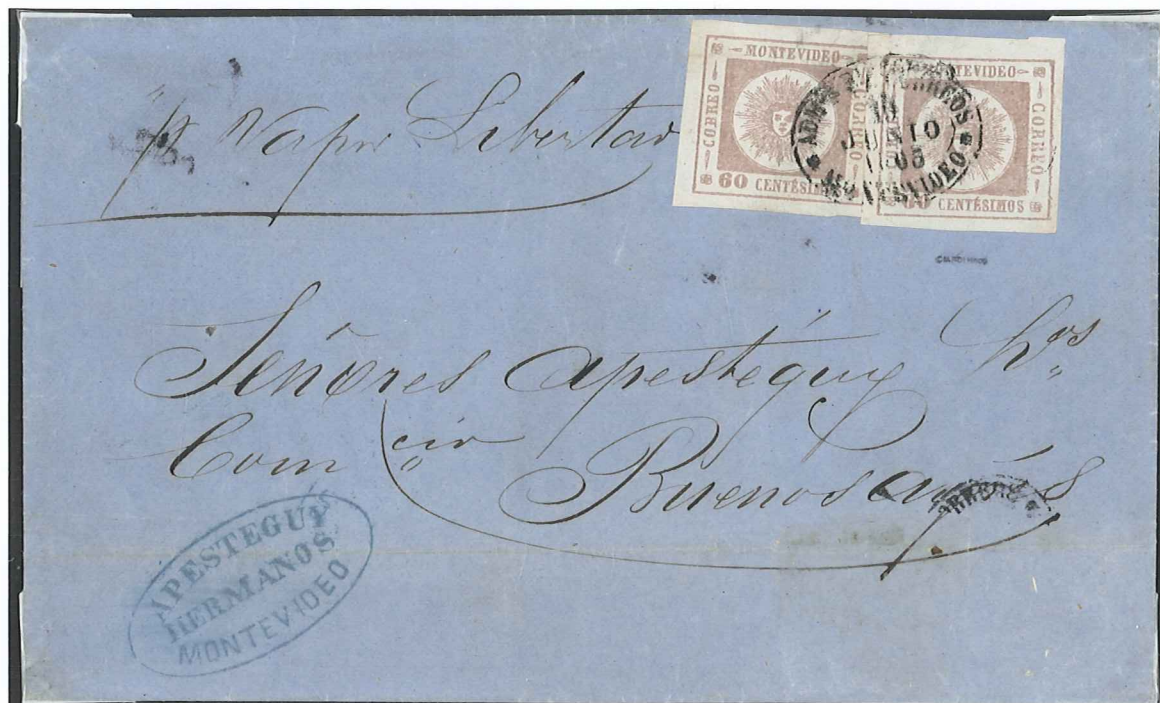 p. Vapor Libertad
MONTEVIDEO
CORREO
CORREO
60 CENTÉSIMOS
MONTEVIDEO
CORREO
60 CENTÉSIMOS
ADMON DE CORREOS
10
JUNIO
MONTEVIDEO
Señores Apesteguy hos
Comcio
Buenos Ayres
APESTEGUY
HERMANOS
MONTEVIDEO